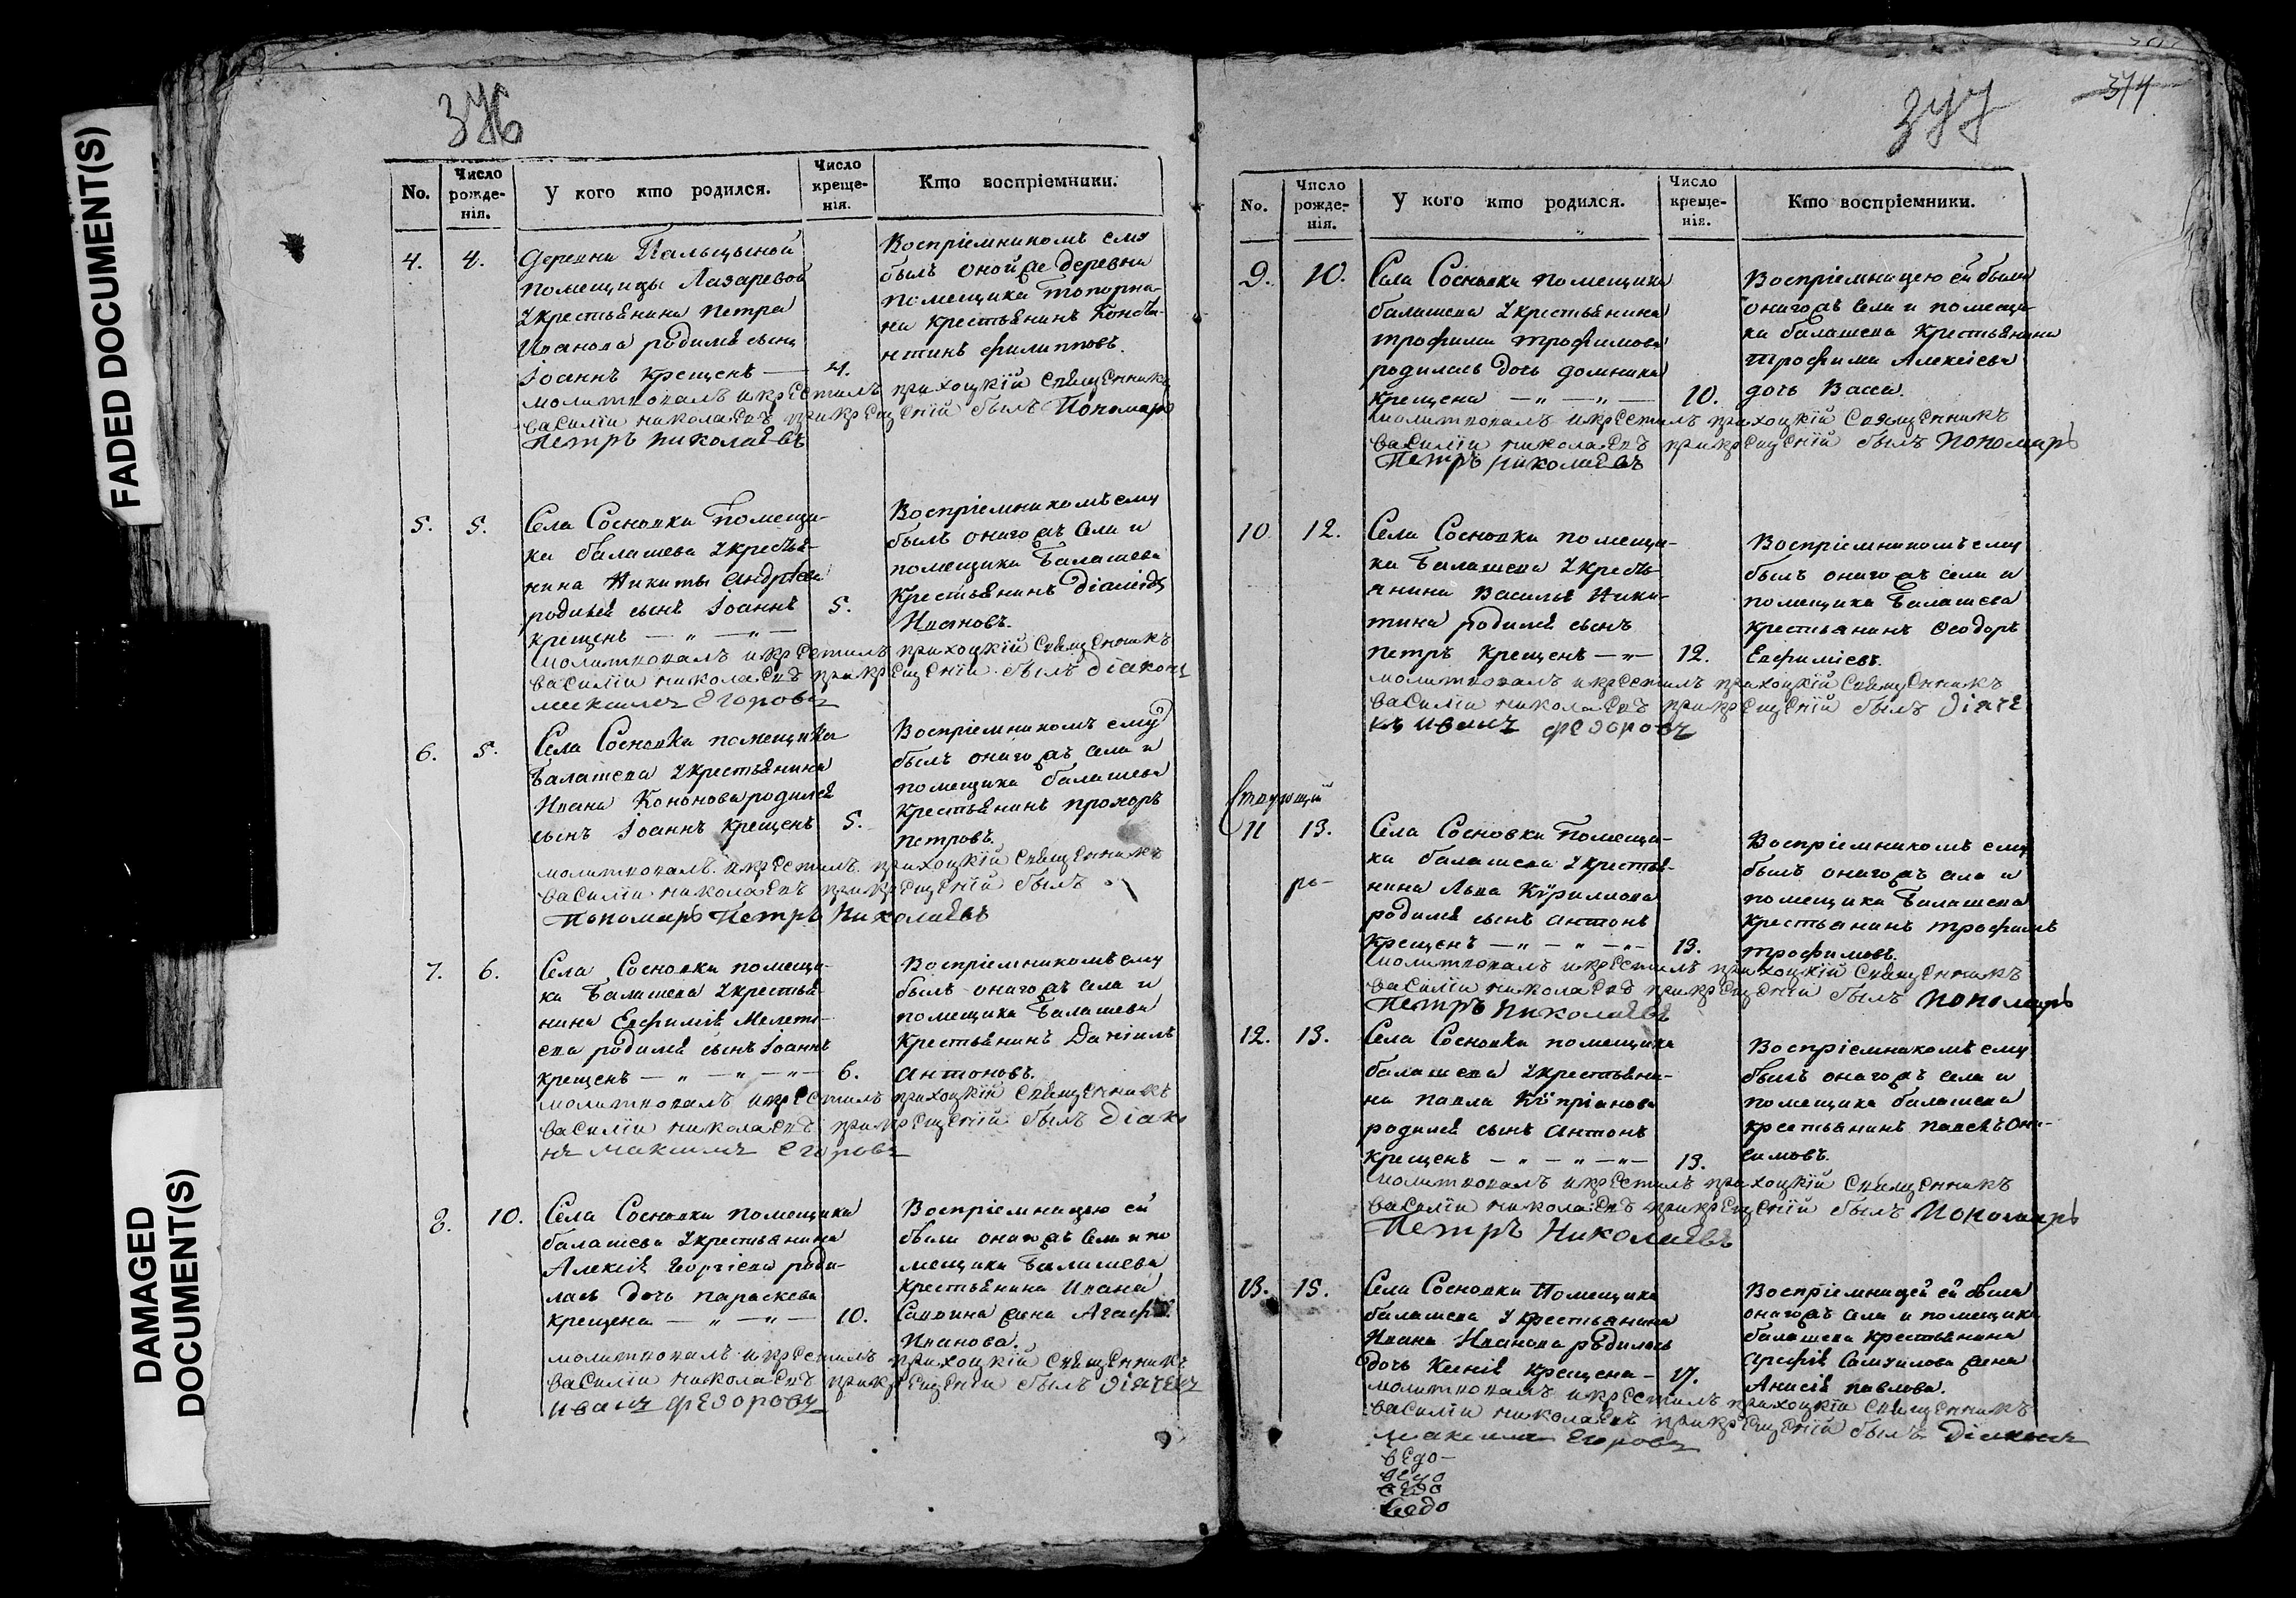 FADED DOCUMENT(S)
DAMAGED
DOCUMENT(S)
376
No.
Число рожде-нія.
У кого кто родился.
Число креще-нія.
Кто воспріемники.
4. 4.
деревни Пальцыной
помещицы Лазаревой
у крестьянина Петра
Иванова родился сынъ
Іоаннъ крещенъ — 4.
Воспріемникомъ ему
былъ оной же деревни
помещика Топорни-
на крестьянинъ Конста-
нтинъ Филипповъ.
молитвовалъ и крестилъ прихоцкїй священникъ
василіи николаевъ при крещенїй былъ Пономарь
Петръ Николаевъ
5. 5.
Села Сосновки Помещи-
ка балашева у кресть-
нина Никиты Андреева
родился сынъ Іоаннъ 5.
крещенъ — „ — „ —
Воспріемникомъ ему
былъ онаго жъ села и
помещика Балашева
крестьянинъ
Ивановъ.
молитвовалъ и крестилъ прихоцкїй священникъ
василіи николаевъ при крещенїй былъ діаконъ
максимъ Егоровъ
6. 5.
Села Сосновки помещика
Балашева у крестьянина
Ивана Кононова родился
сынъ Іоаннъ крещенъ 5.
Воспріемникомъ ему
былъ онаго жъ села и
помещика балашева
крестьянинъ прохоръ
петровъ.
молитвовалъ и крестилъ прихоцкїй священникъ
василіи николаевъ при крещенїй былъ
Пономарь Петръ Николаевъ
7. 6.
Села Сосновки помещи-
ка Балашева у крестья-
нина Евфимія Мелеті-
ева родился сынъ Іоаннъ
крещенъ — „ — „ — „ — 6.
Воспріемникомъ ему
былъ онаго жъ села и
помещика Балашева
крестьянинъ Даніилъ
антоновъ.
молитвовалъ и крестилъ прихоцкїй священникъ
василіи николаевъ при крещенїй былъ діако
нъ максимъ егоровъ
8. 10.
Села Сосновки помещика
балашева у крестьянина
Алексія Георгіева роди-
лась дочь параскева
крещена — „ — „ — 10.
Воспріемницею ей
была онаго жъ села и по
мещика Балашева
крестьянина Ивана
Саввина жена Агафья
Иванова.
молитвовалъ и крестилъ прихоцкїй священникъ
василіи николаевъ при крещенїи былъ дiячекъ
иванъ федоровъ
377
374
No.
Число рожде-нія.
У кого кто родился.
Число креще-нія.
Кто воспріемники.
9. 10.
Села Сосновки помещика
балашева у крестьянина
трофима трофимова
родилась дочь домника
крещена — „ — „ — 10.
Воспріемницею ей была
онаго жъ села и помещи-
ка балашева крестьянина
трофима Алексіева
дочь Васса.
молитвовалъ и крестилъ прихоцкїй священникъ
василіи николаевъ при крещенїй былъ Пономарь
Петръ Николаевъ
10 12.
Села Сосновки помещи-
ка Балашева у кресть-
янина Василья Ники-
тина родился сынъ
петръ крещенъ — „ — 12.
Воспріемникомъ ему
былъ онаго жъ села и
помещика Балашева
крестьянинъ Ѳеодоръ
Евфиміевъ.
молитвовалъ и крестилъ прихоцкїй священникъ
василіи николаевъ при крещенїй былъ діяче
къ иванъ федоровъ
11 13.
Села Сосновки Помещи-
ка балашева у крестья-
нина Льва Кѵрилова
родился сынъ антонъ
крещенъ — „ — „ — „ — 13.
Воспріемникомъ ему
былъ онаго жъ села и
помещика Балашева
крестьянинъ трофимъ
трофимовъ.
ро-
молитвовалъ и крестилъ прихоцкїй священникъ
василіи николаевъ при крещенїй былъ пономарь
Петръ Николаевъ
12. 13.
Села Сосновки помещика
балашева у крестьяни-
на павла Кѵпріанова
родился сынъ антонъ
крещенъ — „ — „ — „ — 13.
Воспріемникомъ ему
былъ онаго жъ села и
помещика балашева
крестьянинъ павелъ Они-
симовъ.
молитвовалъ и крестилъ прихоцкїй священникъ
василіи николаевъ при крещенїй былъ Пономарь
Петръ Николаевъ
13. 15.
Села Сосновки Помещика
балашева у крестьянина
Ивана Иванова родилась
дочь Ксенія крещена — 17.
Воспріемницей ей была
онаго жъ села и помещика
балашева крестьянина
Самуилова жена
Анисія павлова.
молитвовалъ и крестилъ прихоцкїи священникъ
василіи николаевъ при крещенїй былъ діаконъ
максимъ Егоровъ
ведо-
ведо
ведо
ведо